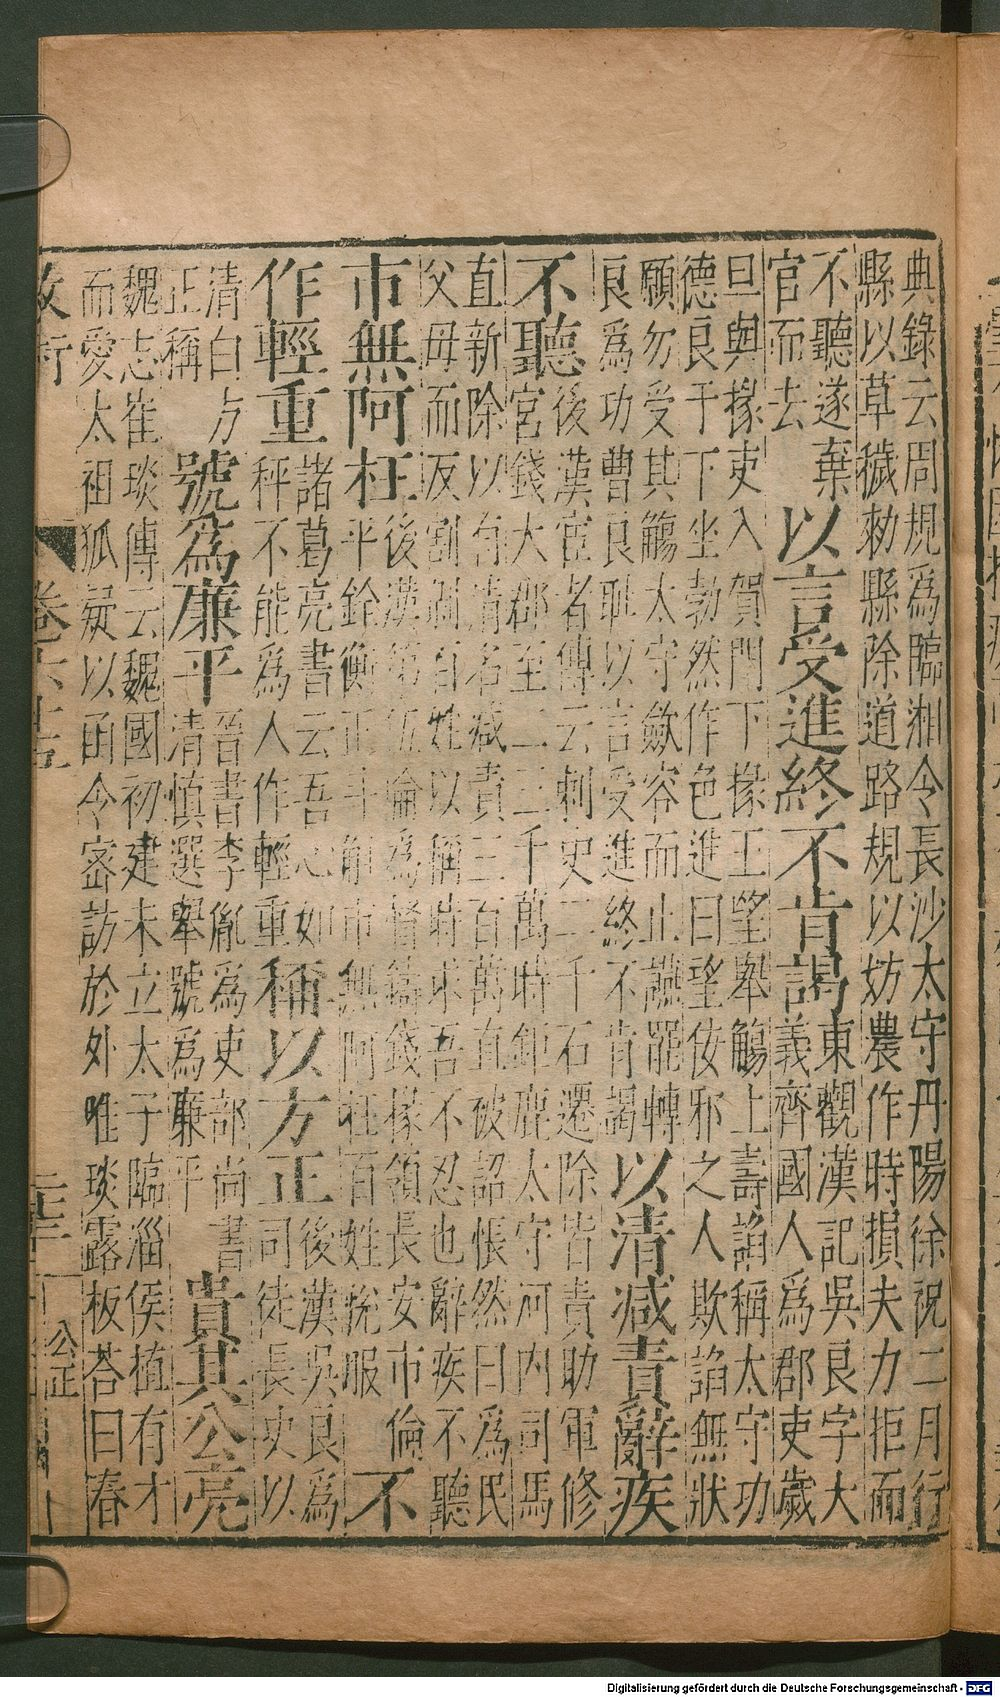 典錄云周規爲臨湘令長沙太守丹陽徐祝二月行
縣以草穢勑縣除道路規以妨農作時損夫力拒而
不聽遂棄
官而去
以言受進終不肯謁
東觀漢記吳良字大
義齊國人爲郡吏歲
旦與掾吏入賀門下掾王望舉觴上壽諂稱太守功
德良于下坐勃然作色進曰望佞邪之人欺諂無狀
願勿受其觴太守斂容而止讌罷轉
良爲功曹良恥以言受進終不肯謁
以清减責辭疾
不聽
後漢宦者傳云刺史二千石遷除皆責助軍修
宮錢大郡至二三千萬時鉅鹿太守河内司馬
直新除以有清名减責三百萬直被詔悵然曰爲民
父母而反割剥百姓以稱時求吾不忍也辭疾不聽
市無阿枉
後漢第伍倫爲督鑄錢掾領長安市倫
平銓衡正斗斛市無阿枉百姓悅服
不
作輕重
諸葛亮書云吾心如
秤不能爲人作輕重
稱以方正
後漢吳良爲
司徒長史以
清白方
正稱
號爲廉平
晉書李胤爲吏部尚書
清慎選舉號爲廉平
貴其公亮
魏志崔琰傳云魏國初建未立太子臨淄侯植有才
而愛太祖狐疑以函令密訪於外唯琰露板荅曰春
政術
公正
Digitalisierung gefördert durch die Deutsche Forschungsgemeinschaft - DFG